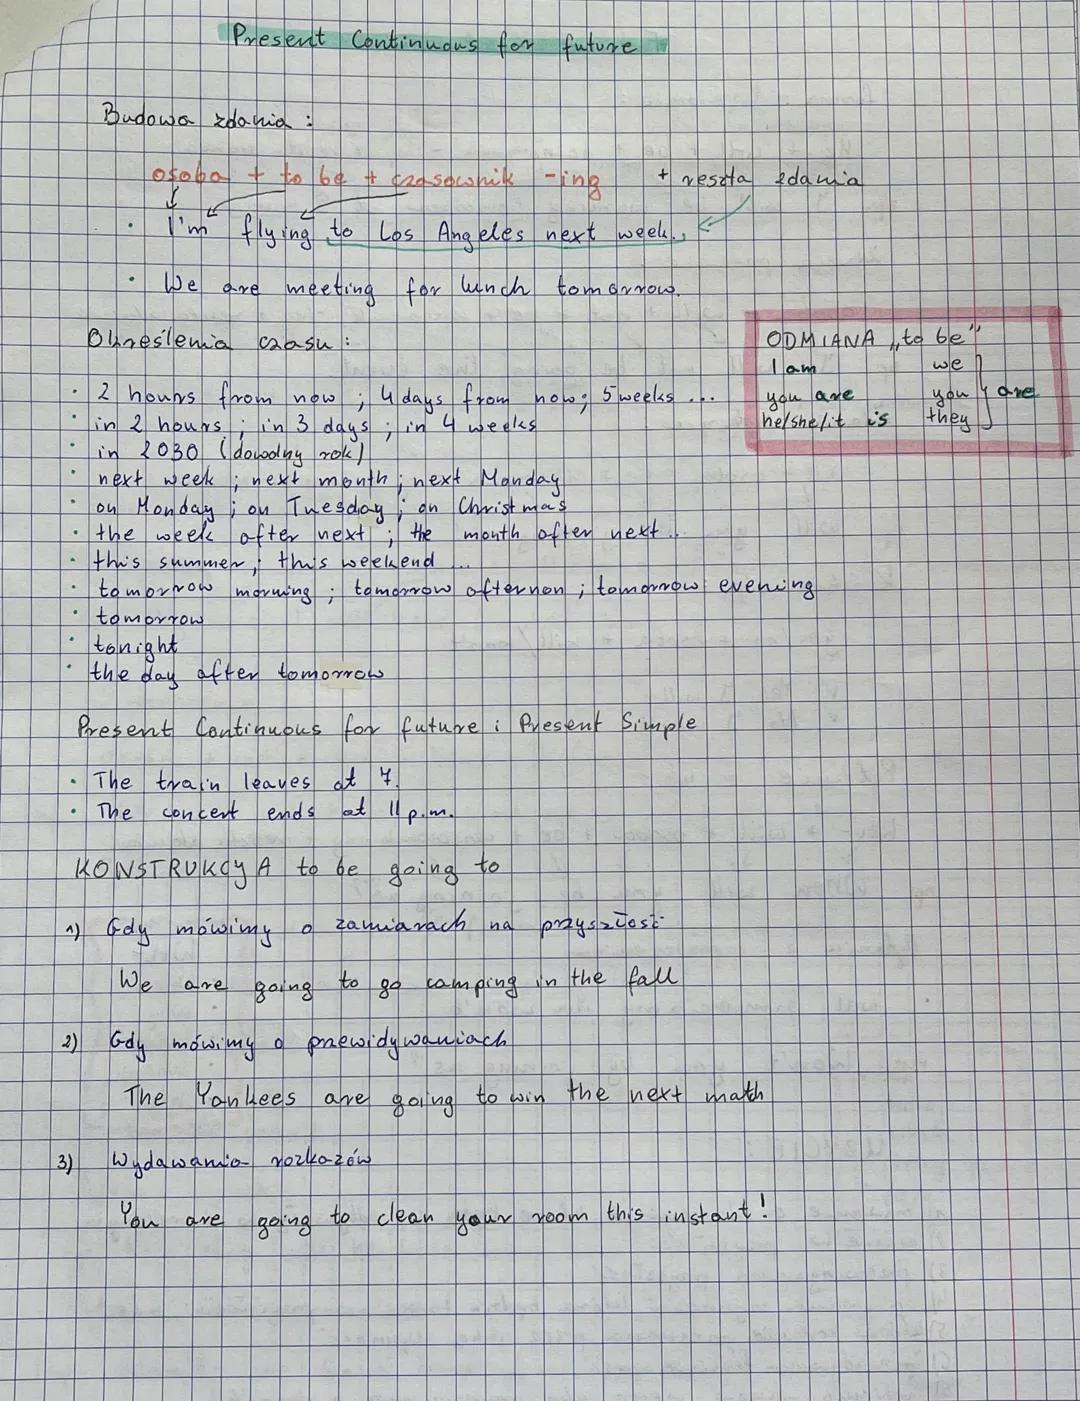 Present Continuous for future
Budowa zdania :
osoba + to be + czasownik -ing + reszta zdania
• I'm flying to Los Angeles next week.
• We are meeting for lunch tomorrow.
Określenia czasu :
ODMIANA „to be"
I am we
you are you } are
he/she/it is they
• 2 hours from now ; 4 days from now ; 5 weeks ...
• in 2 hours ; in 3 days ; in 4 weeks
• in 2030 (dowolny rok)
• next week ; next month ; next Monday
• on Monday ; on Tuesday ; on Christmas
• the week after next ; the month after next ...
• this summer ; this weekend ...
• tomorrow morning ; tomorrow afternon ; tomorrow evening
• tomorrow
• tonight
• the day after tomorrow
Present Continuous for future i Present Simple
• The train leaves at 7.
• The concert ends at 11 p.m.
KONSTRUKCYA to be going to
1) Gdy mówimy o zamiarach na przyszłość
We are going to go camping in the fall
2) Gdy mówimy o przewidywaniach
The Yankees are going to win the next math
3) Wydawania rozkazów
You are going to clean your room this instant!